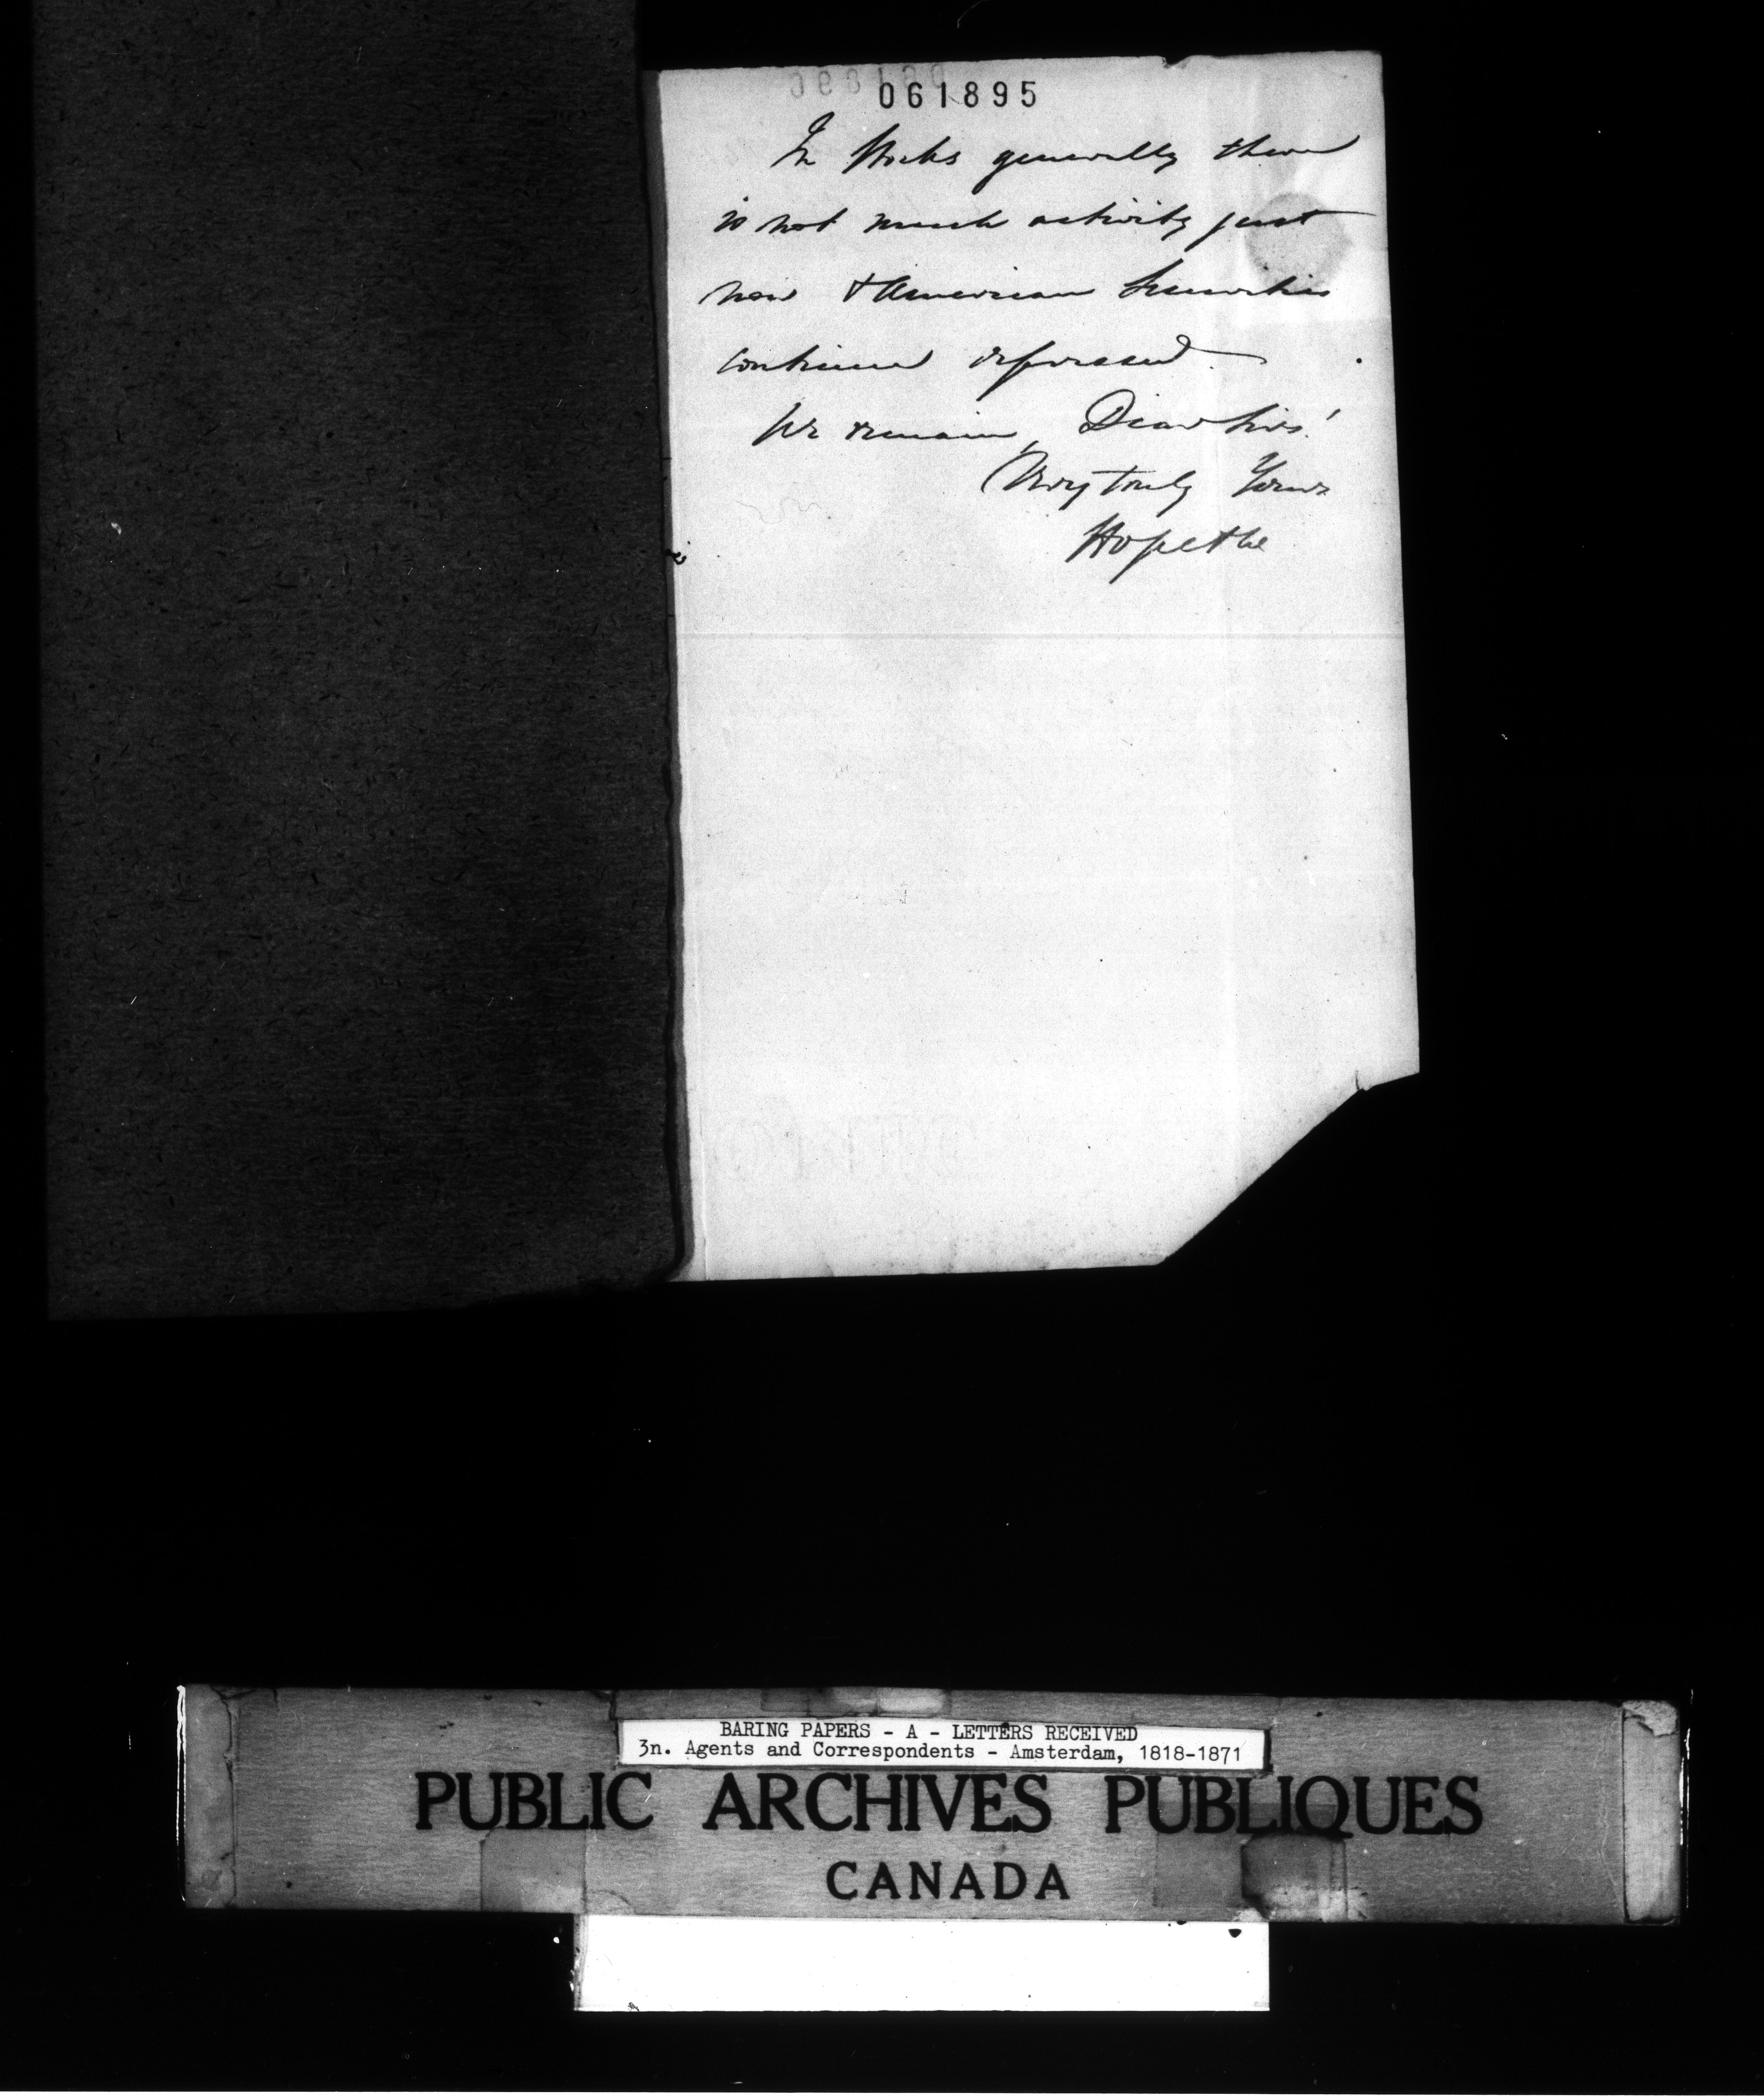 061895
In Stocks generally there
is not much activity just
now & American Securities
continue depressed.
We remain, Dear Sirs!
Very truly Yours
Hope & Co
BARING PAPERS - A - LETTERS RECEIVED
3n. Agents and Correspondents - Amsterdam, 1818-1871
PUBLIC ARCHIVES PUBLIQUES
CANADA